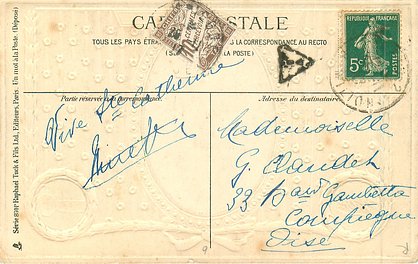 CARTE POSTALE
TOUS LES PAYS ÉTRANGERS LA CORRESPONDANCE AU RECTO
LA POSTE)
RÉPUBLIQUE FRANÇAISE
5c
POSTES
Partie réservée à la correspondance.
Adresse du destinataire.
Vive Ste Catherine
Mademoiselle
G. Claudet
33 Bard Gambetta
Compiègne
Oise
Série 941 Raphael Tuck & Fils Ltd., Editeurs, Paris. Un mot à la Poste. (Déposé)